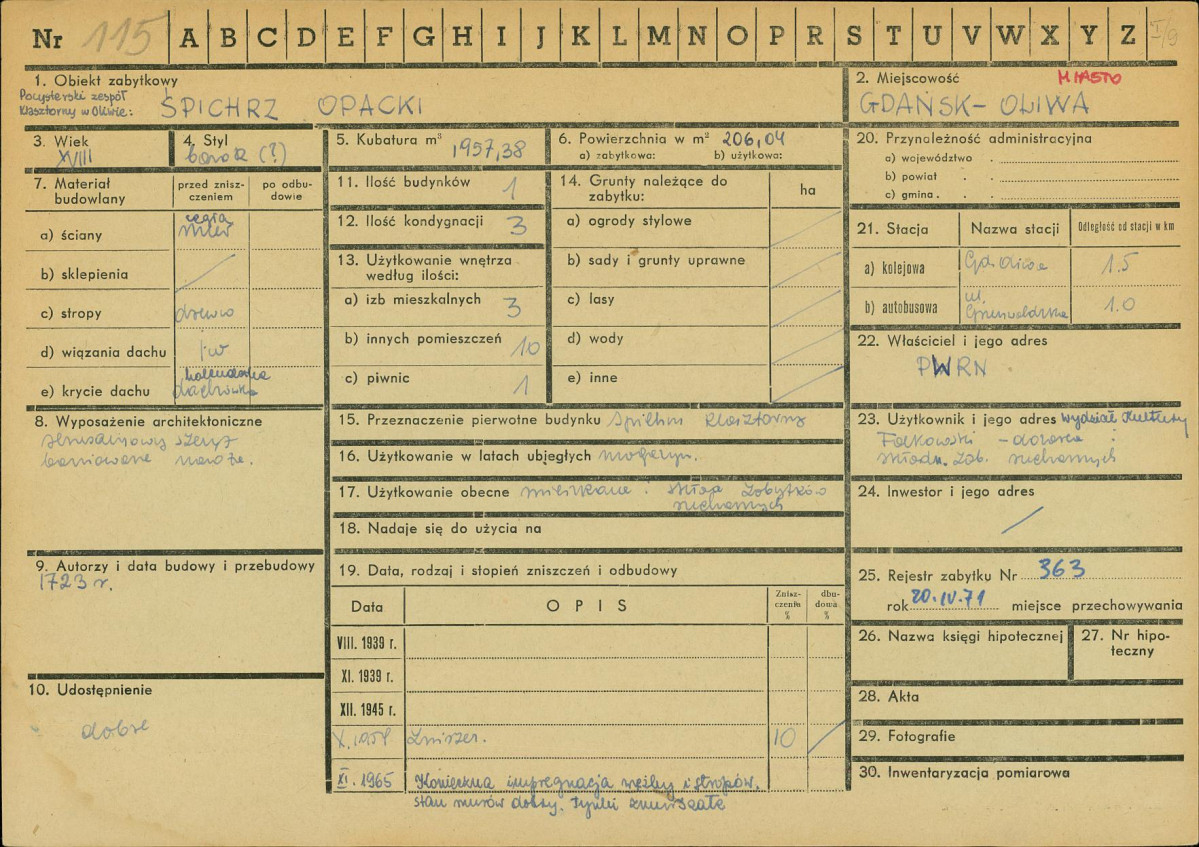 Nr 115 A B C D E F G H I J K L M N O P R S T U V W X Y Z I/9
1. Obiekt zabytkowy
Pocysterski zespół
klasztorny w Oliwie: SPICHRZ OPACKI
2. Miejscowość MIASTO
GDAŃSK-OLIWA
3. Wiek
XVIII
4. Styl
barok (?)
5. Kubatura m³ 1957,38
6. Powierzchnia w m² 206,04
a) zabytkowa: b) użytkowa:
7. Materiał budowlany
przed zniszczeniem
po odbudowie
a) ściany cegła
mur
b) sklepienia
c) stropy drewno
d) wiązania dachu jw
e) krycie dachu holenderska
dachówka
8. Wyposażenie architektoniczne
szczyt
9. Autorzy i data budowy i przebudowy
1723 r.
10. Udostępnienie
dobre
11. Ilość budynków 1
12. Ilość kondygnacji 3
13. Użytkowanie wnętrza
według ilości:
a) izb mieszkalnych 3
b) innych pomieszczeń 10
c) piwnic 1
14. Grunty należące do
zabytku: ha
a) ogrody stylowe
b) sady i grunty uprawne
c) lasy
d) wody
e) inne
15. Przeznaczenie pierwotne budynku spichrz klasztorny
16. Użytkowanie w latach ubiegłych magazyn.
17. Użytkowanie obecne mieszkanie i skład zabytków
ruchomych
18. Nadaje się do użycia na
19. Data, rodzaj i stopień zniszczeń i odbudowy
Data OPIS Zniszczenia % dbudowa %
VIII. 1939 r.
XI. 1939 r.
XII. 1945 r.
X. 1958 Zniszcz. 10
XI. 1965 Konieczna impregnacja więźby i stropów,
stan murów dobry. tynki zmurszałe
20. Przynależność administracyjna
a) województwo
b) powiat
c) gmina
21. Stacja Nazwa stacji Odległość od stacji w km
a) kolejowa Gd. Oliwa 1.5
b) autobusowa ul.
Grunwaldzka 1.0
22. Właściciel i jego adres
PWRN
23. Użytkownik i jego adres Wydział Kultury
Falkowski - dozorca i
składn. zab. ruchomych
24. Inwestor i jego adres
25. Rejestr zabytku Nr 363
rok 20.IV.71 miejsce przechowywania
26. Nazwa księgi hipotecznej
27. Nr hipo-
teczny
28. Akta
29. Fotografie
30. Inwentaryzacja pomiarowa